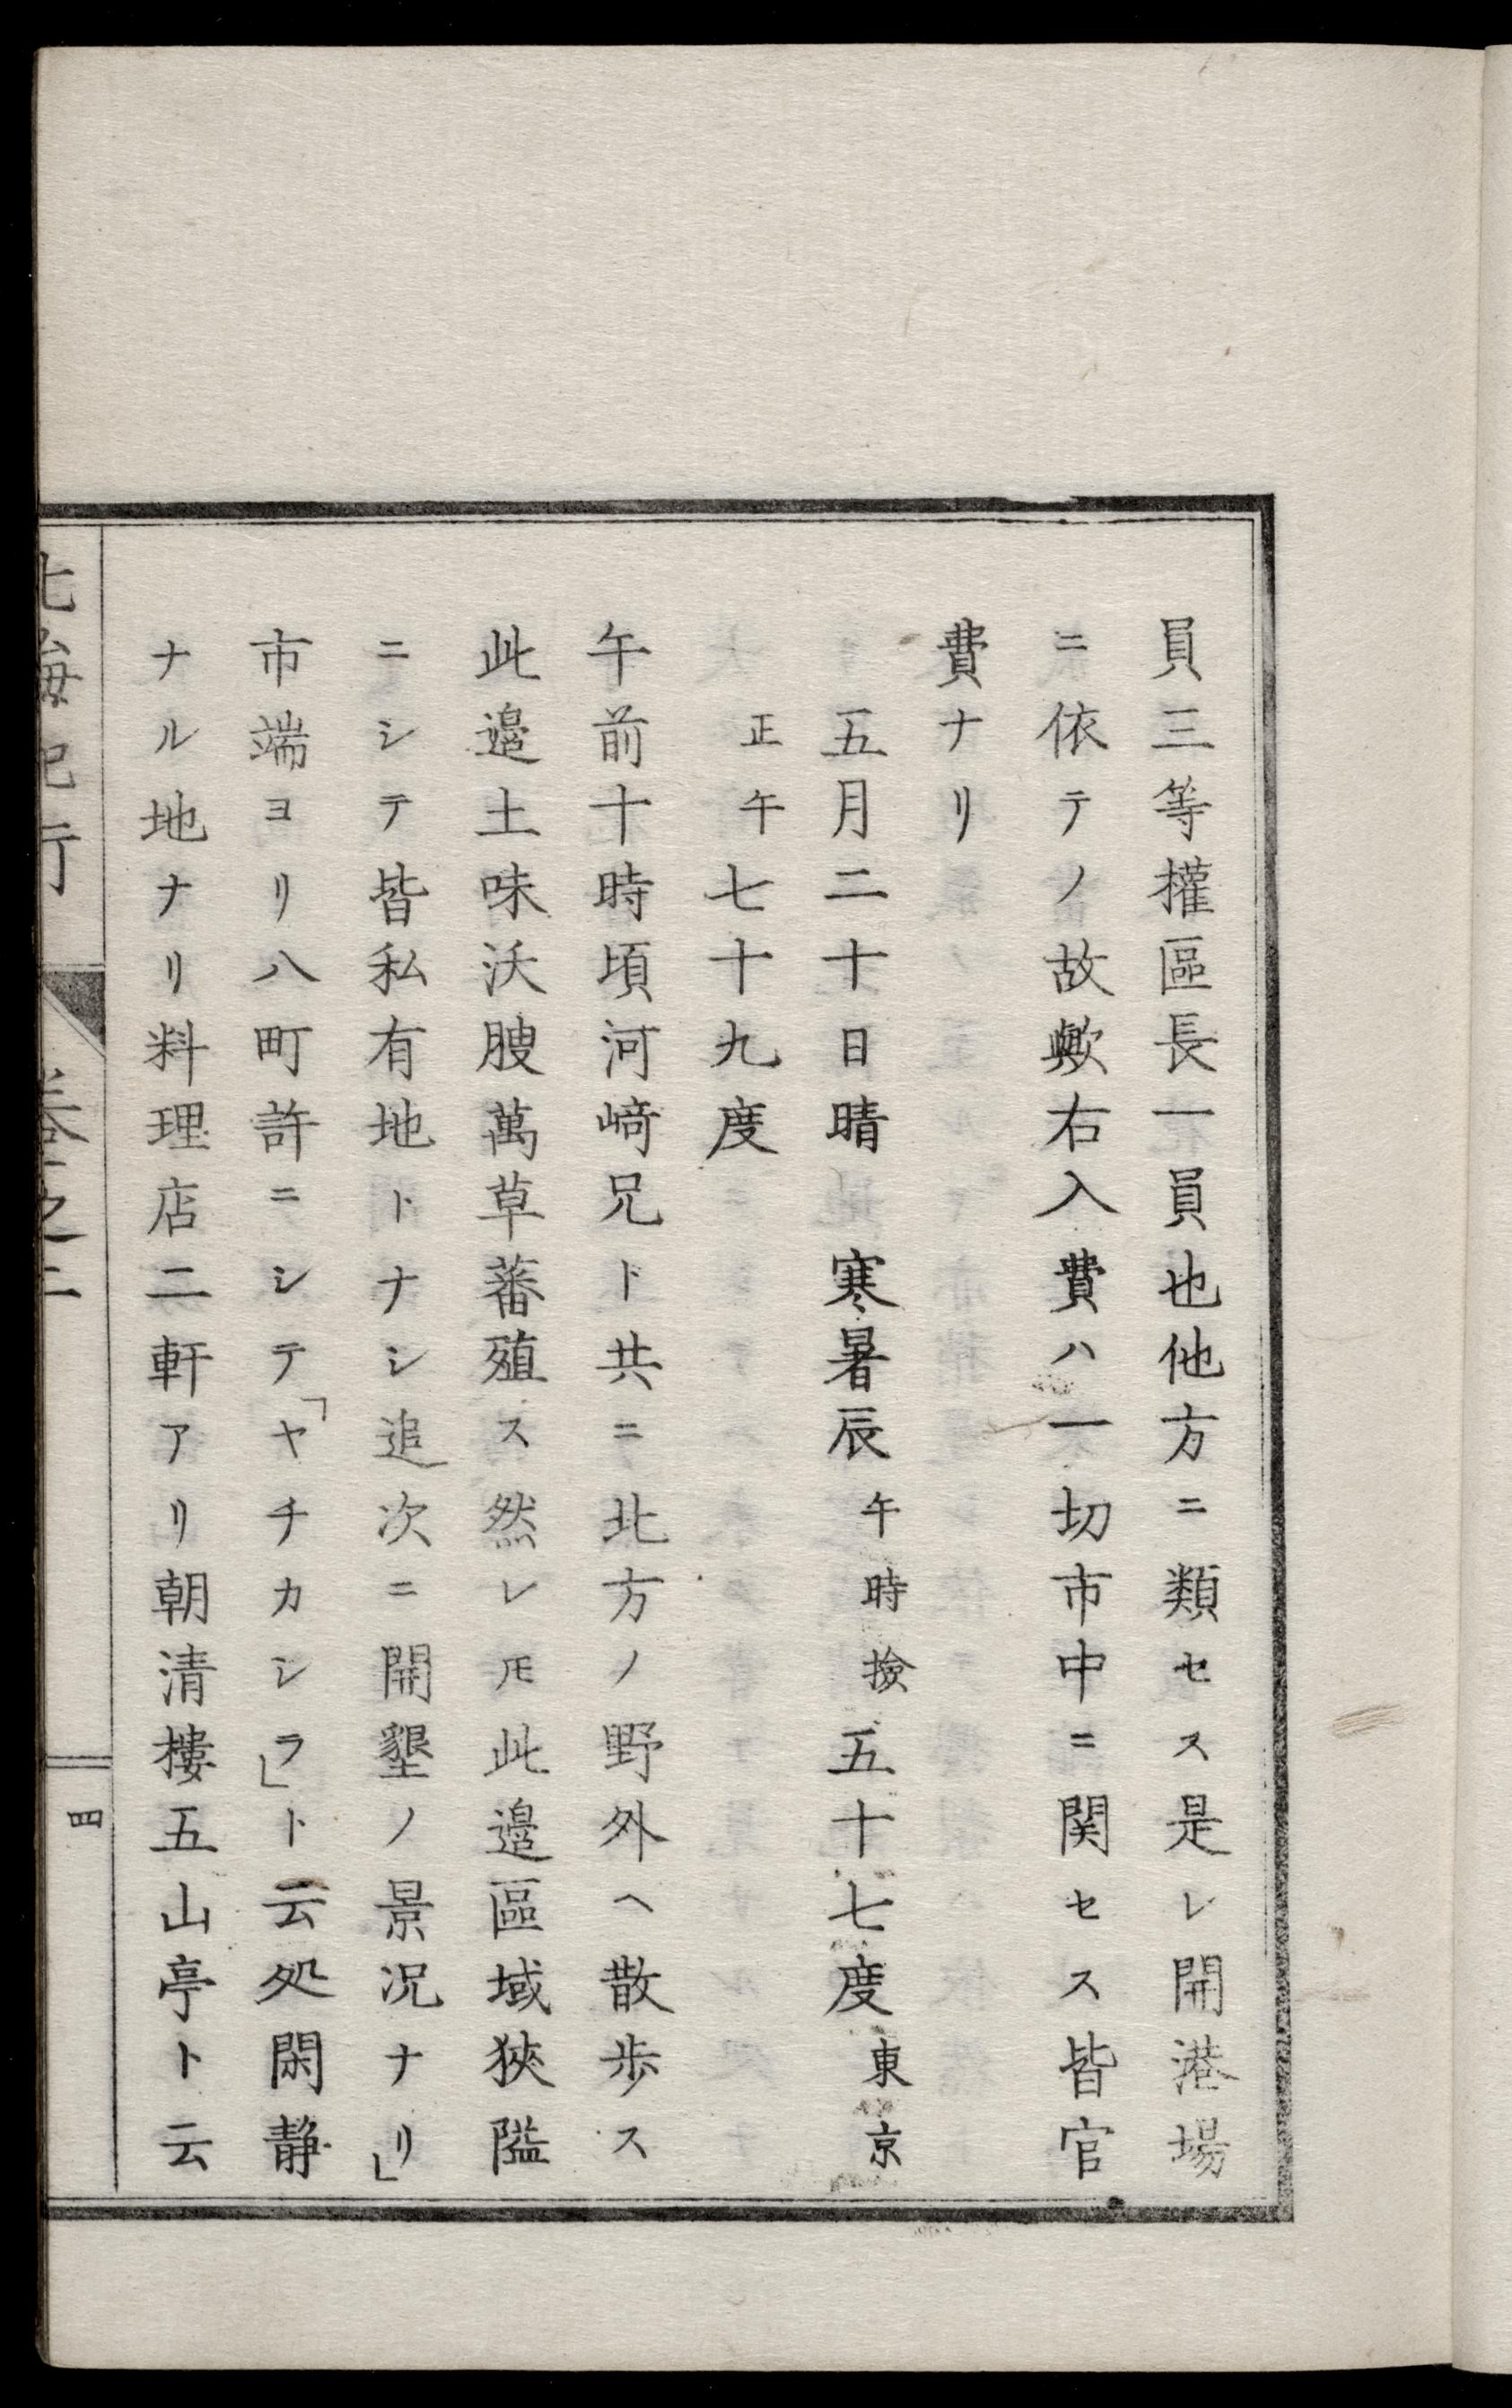 員三等權區長一員也他方ニ類セス是レ開港場
ニ依テノ故歟右入費ハ一切市中ニ関セス皆官
費ナリ
五月二十日晴 寒暑辰午時撿五十七度東京
正午七十九度
午前十時頃河﨑兄ト共ニ北方ノ野外ヘ散歩ス
此邉土味沃腴萬草蕃殖ス然レ𪜈此邉區域狹隘
ニシテ皆私有地トナシ追次ニ開墾ノ景况ナリ」
市端ヨリ八町許ニシテ「ヤチカシラ」ト云処閑静
ナル地ナリ料理店二軒アリ朝清樓五山亭ト云
北海紀行 巻之二 四